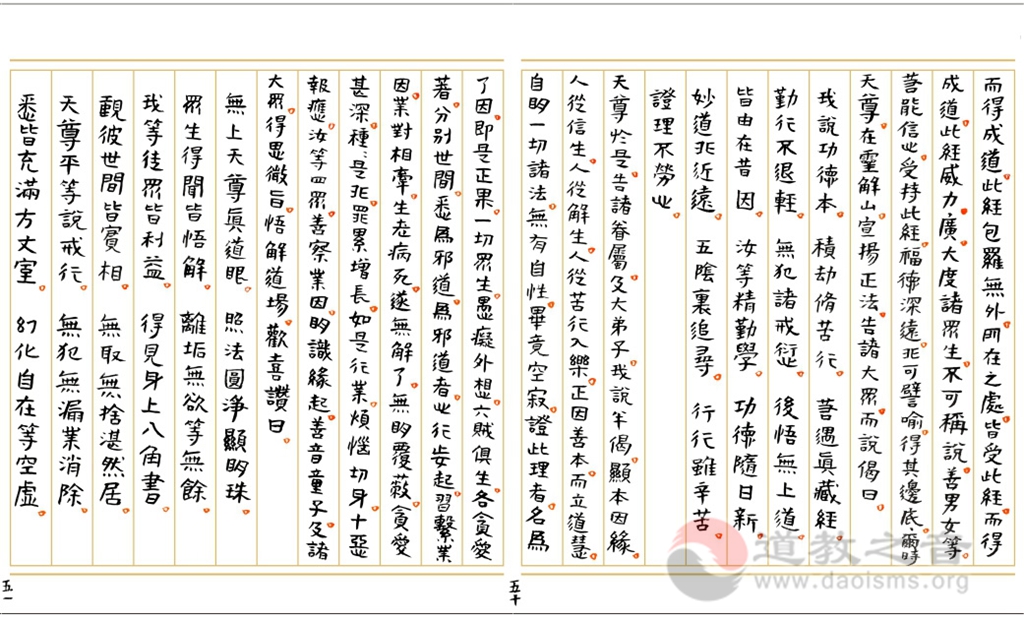 而得成道此經包羅無外所在之處皆受此經而得
成道此經威力廣大度諸眾生不可稱說善男女等
若能信心受持此經福德深遠非可譬喻得其邊底爾時
天尊在靈解山宣揚正法告諸大眾而說偈曰
我說功德本 積劫脩苦行 若遇真藏經
勤行不退輊 無犯諸戒愆 後悟無上道
皆由在昔因 汝等精勤學 功德隨日新
妙道非近遠 五陰裏追尋 行行雖辛苦
證理不勞心
天尊於是告諸眷屬及大弟子我說半偈顯本因緣
人從信生人從解生人從苦行入樂正因善本而立道慧
自明一切諸法無有自性畢竟空寂證此理者名為
了因即是正果一切眾生愚癡外想六賊俱生各貪愛
著分別世間悉為邪道為邪道者心行妄起習繫業
因業對相牽生老病死遂無解了無明覆蔽貪愛
甚深種種是非罪累增長如是行業煩惱切身十惡
報應汝等四眾善察業因明識緣起善音童子及諸
大眾得思微旨悟解道場歡喜讚曰
無上天尊真道眼 照法圓淨顯明珠
眾生得聞皆悟解 離垢無欲等無餘
我等徒眾皆利益 得見身上八角書
觀彼世間皆實相 無取無捨湛然居
天尊平等說戒行 無犯無漏業消除
悉皆充滿方丈室 幻化自在等空虛
五十
五一
道教之音
www.daoisms.org